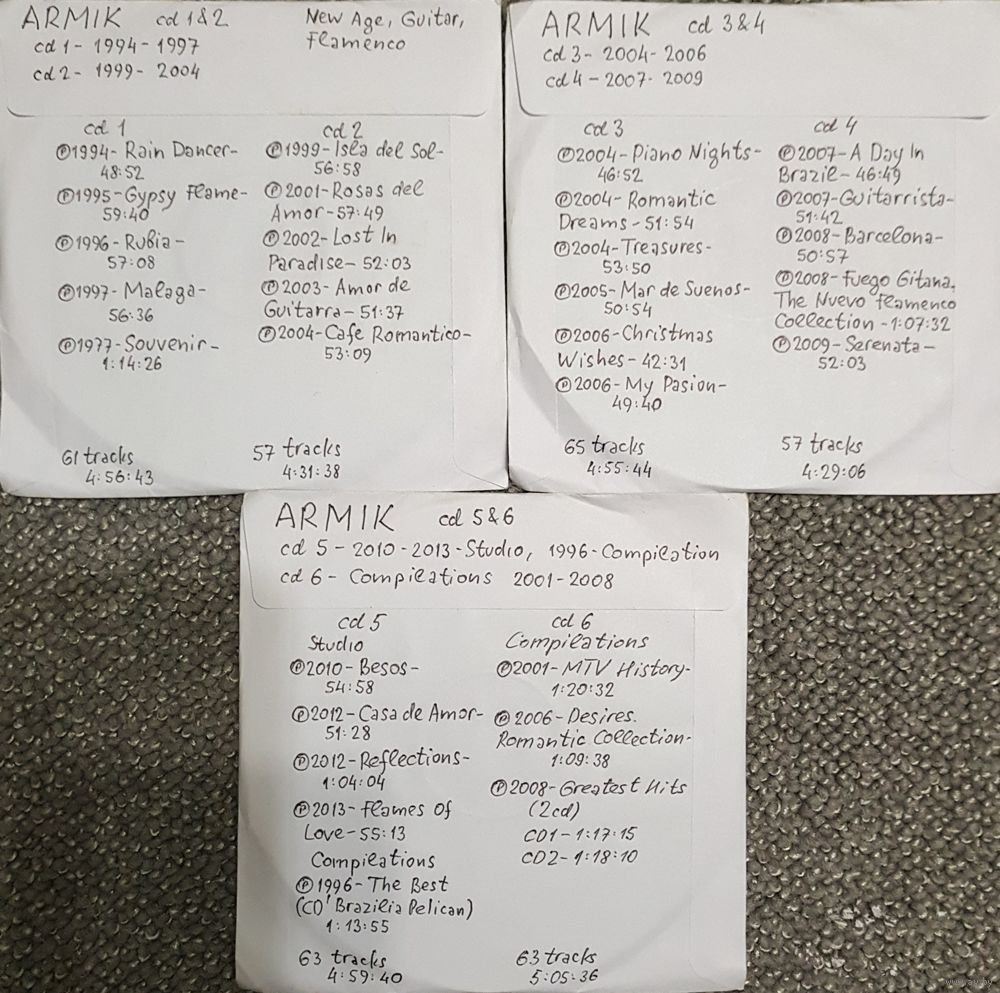 ARMIK cd 1&2
New Age, Guitar,
Flamenco
cd 1 - 1994 - 1997
cd 2 - 1999 - 2004
cd 1
℗1994 - Rain Dancer -
48:52
℗1995 - Gypsy Flame -
59:40
℗1996 - Rubia -
57:08
℗1997 - Malaga -
56:36
℗1977 - Souvenir -
1:14:26
61 tracks
4:56:43
cd 2
℗1999 - Isla del Sol -
56:58
℗2001 - Rosas del
Amor - 57:49
℗2002 - Lost In
Paradise - 52:03
℗2003 - Amor de
Guitarra - 51:37
℗2004 - Cafe Romantico -
53:09
57 tracks
4:31:38
ARMIK cd 3&4
cd 3 - 2004 - 2006
cd 4 - 2007 - 2009
cd 3
℗2004 - Piano Nights -
46:52
℗2004 - Romantic
Dreams - 51:54
℗2004 - Treasures -
53:50
℗2005 - Mar de Suenos -
50:54
℗2006 - Christmas
Wishes - 42:31
℗2006 - My Pasion -
49:40
65 tracks
4:55:44
cd 4
℗2007 - A Day In
Brazil - 46:49
℗2007 - Guitarrista -
51:42
℗2008 - Barcelona -
50:57
℗2008 - Fuego Gitana,
The Nuevo Flamenco
Collection - 1:07:32
℗2009 - Serenata -
52:03
57 tracks
4:29:06
ARMIK cd 5&6
cd 5 - 2010 - 2013 - Studio, 1996 - Compilation
cd 6 - Compilations 2001 - 2008
cd 5
Studio
℗2010 - Besos -
54:58
℗2012 - Casa de Amor -
51:28
℗2012 - Reflections -
1:04:04
℗2013 - Flames Of
Love - 55:13
Compilations
℗1996 - The Best
(CD' Brazilia Pelican)
1:13:55
63 tracks
4:59:40
cd 6
Compilations
℗2001 - MTV History -
1:20:32
℗2006 - Desires.
Romantic Collection -
1:09:38
℗2008 - Greatest Hits
(2cd)
CD1 - 1:17:15
CD2 - 1:18:10
63 tracks
5:05:36